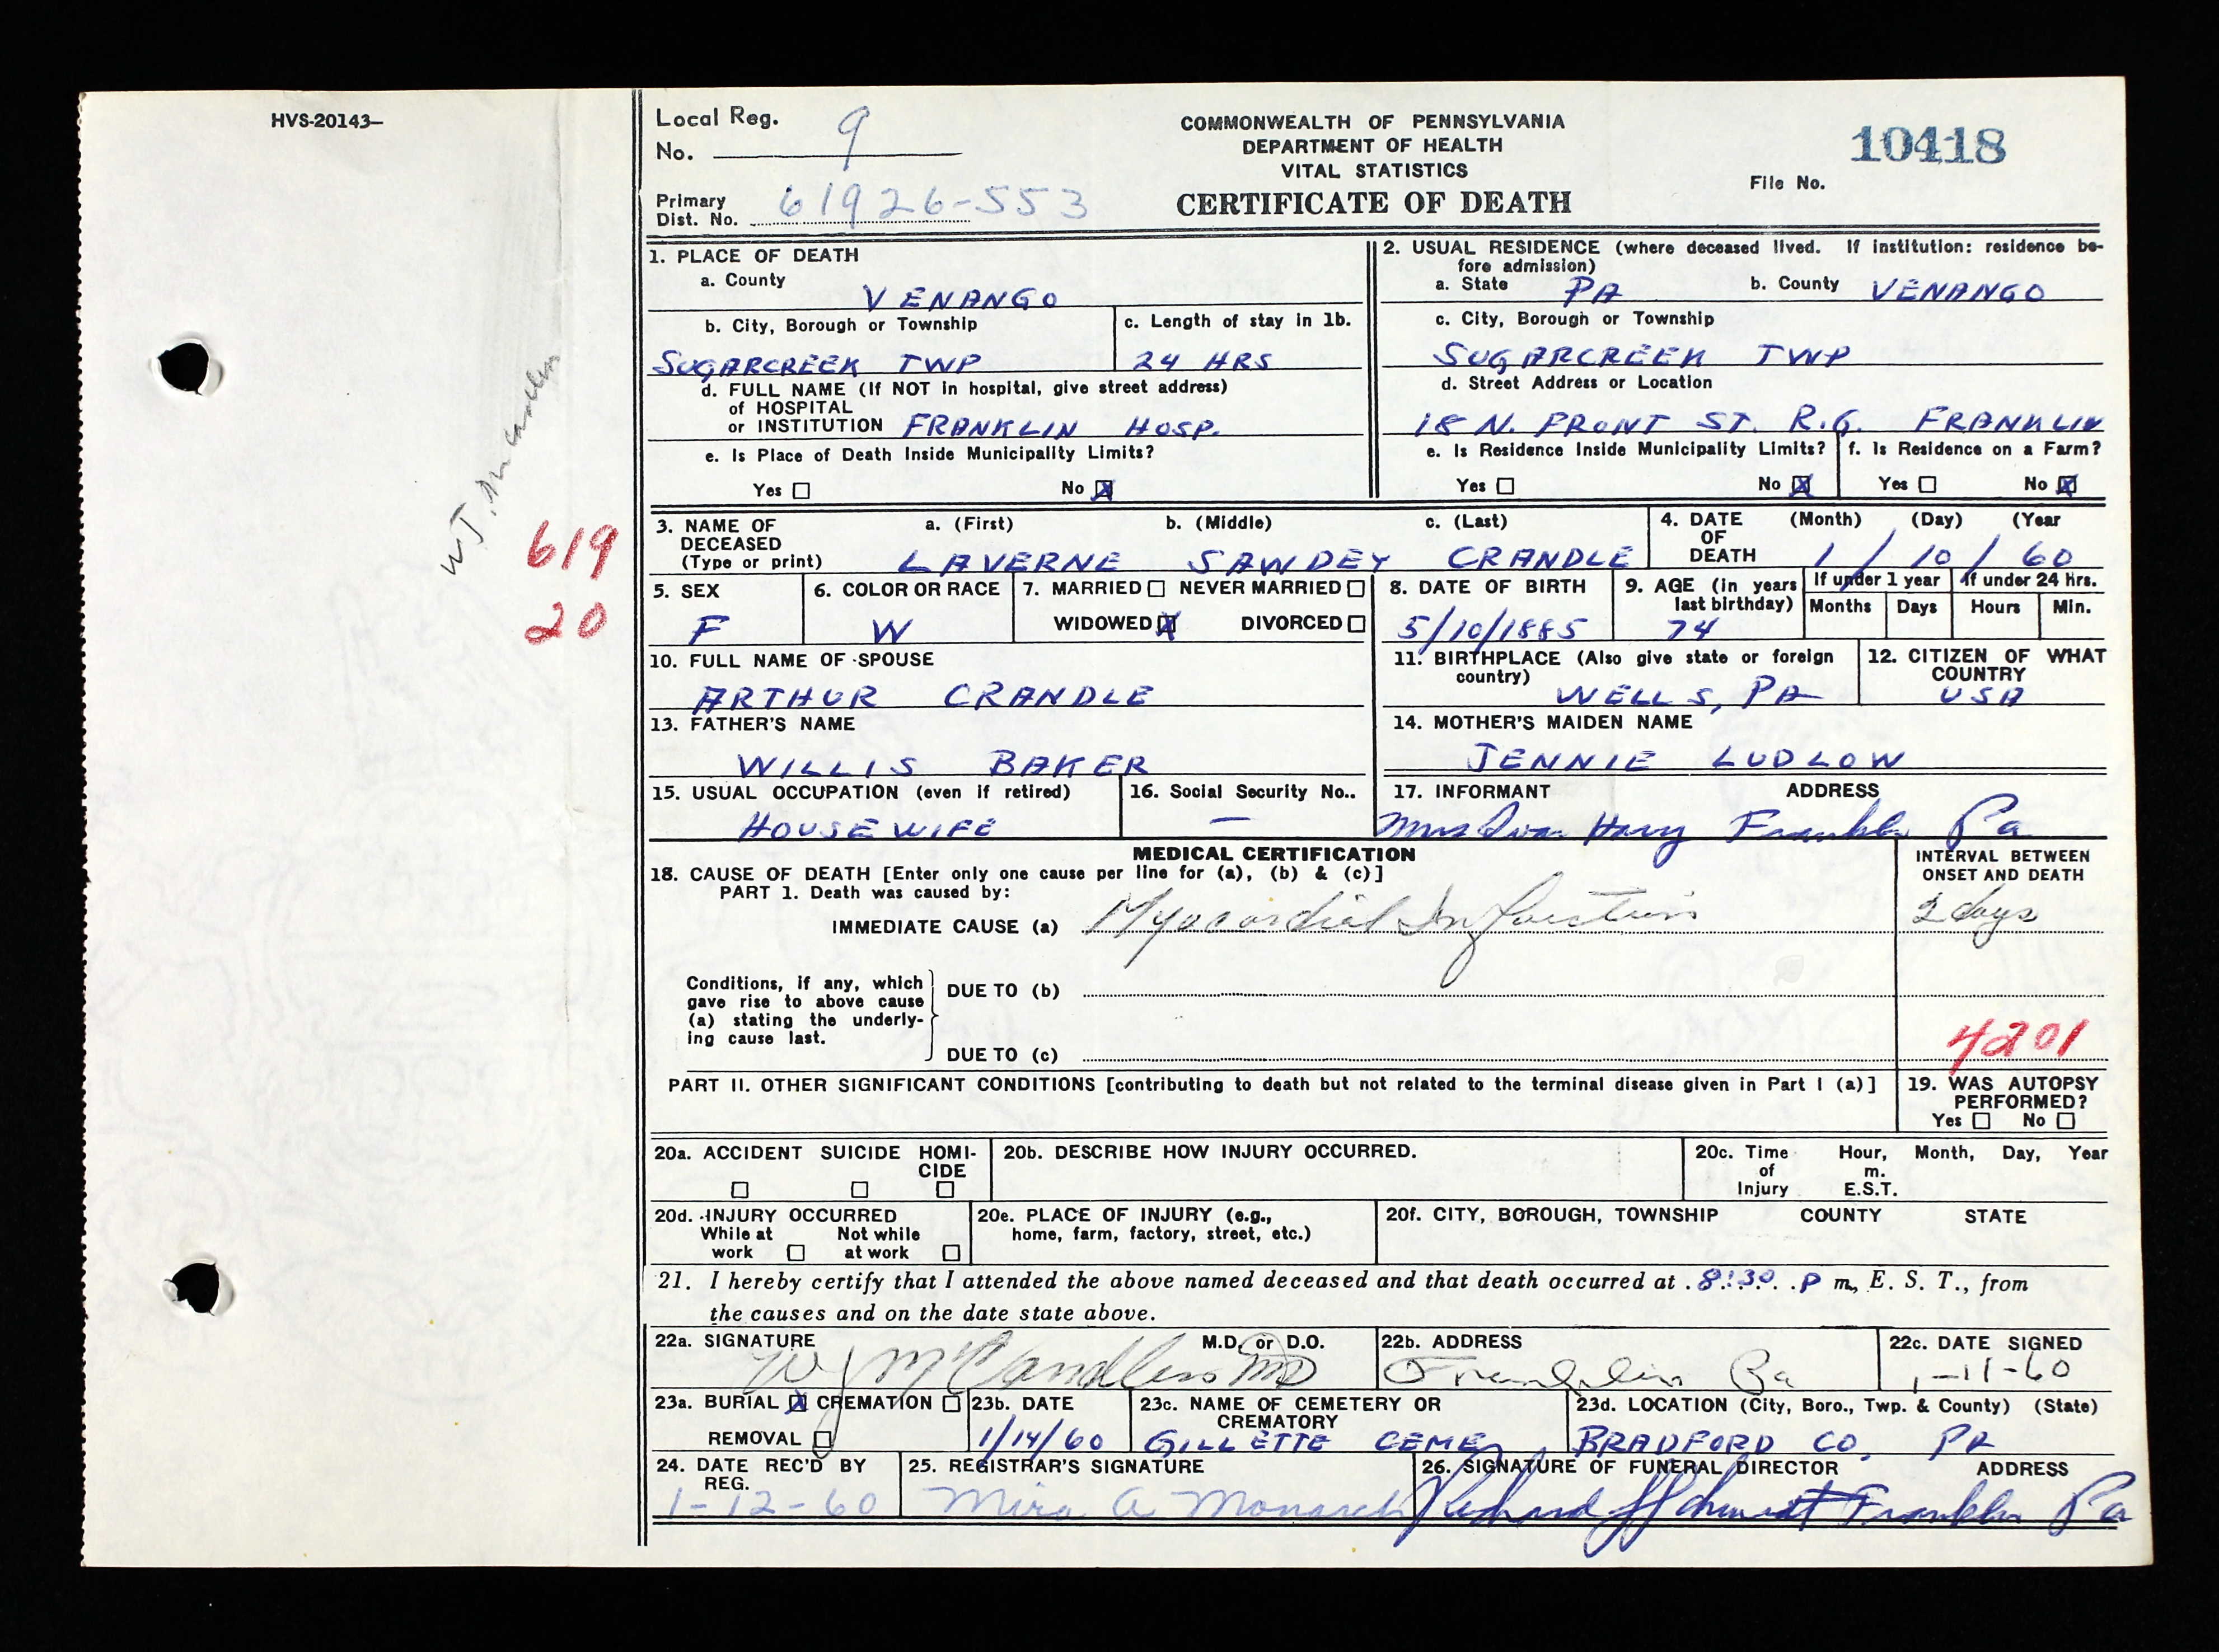 HVS-20143—
Local Reg. No. 9
Primary Dist. No. 61926-553
COMMONWEALTH OF PENNSYLVANIA
DEPARTMENT OF HEALTH
VITAL STATISTICS
CERTIFICATE OF DEATH
10418
File No.
W J. McCandless
619
20
1. PLACE OF DEATH
a. County
VENANGO
b. City, Borough or Township
SUGARCREEK TWP
c. Length of stay in 1b.
24 HRS
d. FULL NAME (If NOT in hospital, give street address)
of HOSPITAL
or INSTITUTION FRANKLIN HOSP.
e. Is Place of Death Inside Municipality Limits?
Yes ☐ No ☒
2. USUAL RESIDENCE (where deceased lived. If institution: residence be-
fore admission)
a. State PA b. County VENANGO
c. City, Borough or Township
SUGARCREEK TWP
d. Street Address or Location
18 N. FRONT ST. R.G. FRANKLIN
e. Is Residence Inside Municipality Limits?
Yes ☐ No ☒
f. Is Residence on a Farm?
Yes ☐ No ☒
3. NAME OF DECEASED (Type or print)
a. (First) b. (Middle) c. (Last)
LAVERNE SAWDEY CRANDLE
4. DATE OF DEATH (Month) (Day) (Year
1 / 10 / 60
5. SEX
F
6. COLOR OR RACE
W
7. MARRIED ☐ NEVER MARRIED ☐
WIDOWED ☒ DIVORCED ☐
8. DATE OF BIRTH
5/10/1885
9. AGE (in years last birthday)
74
If under 1 year
Months Days
If under 24 hrs.
Hours Min.
10. FULL NAME OF SPOUSE
ARTHUR CRANDLE
11. BIRTHPLACE (Also give state or foreign country)
WELLS, PA
12. CITIZEN OF WHAT COUNTRY
USA
13. FATHER'S NAME
WILLIS BAKER
14. MOTHER'S MAIDEN NAME
JENNIE LUDLOW
15. USUAL OCCUPATION (even if retired)
HOUSEWIFE
16. Social Security No..
—
17. INFORMANT ADDRESS
Mrs Franklin Pa
MEDICAL CERTIFICATION
18. CAUSE OF DEATH [Enter only one cause per line for (a), (b) & (c)]
PART 1. Death was caused by:
IMMEDIATE CAUSE (a) Myocardial Infarction
INTERVAL BETWEEN
ONSET AND DEATH
2 days
Conditions, if any, which
gave rise to above cause
(a) stating the underly-
ing cause last.
DUE TO (b)
DUE TO (c)
4201
PART II. OTHER SIGNIFICANT CONDITIONS [contributing to death but not related to the terminal disease given in Part I (a)]
19. WAS AUTOPSY
PERFORMED?
Yes ☐ No ☐
20a. ACCIDENT SUICIDE HOMI-
CIDE
☐ ☐ ☐
20b. DESCRIBE HOW INJURY OCCURRED.
20c. Time of Injury Hour, m. E.S.T. Month, Day, Year
20d. INJURY OCCURRED
While at work ☐ Not while at work ☐
20e. PLACE OF INJURY (e.g.,
home, farm, factory, street, etc.)
20f. CITY, BOROUGH, TOWNSHIP COUNTY STATE
21. I hereby certify that I attended the above named deceased and that death occurred at 8:30 P m., E. S. T., from
the causes and on the date state above.
22a. SIGNATURE M.D. or D.O.
W J McCandless MD
22b. ADDRESS
Franklin Pa
22c. DATE SIGNED
1-11-60
23a. BURIAL ☒ CREMATION ☐
REMOVAL ☐
23b. DATE
1/14/60
23c. NAME OF CEMETERY OR
CREMATORY
GILLETTE CEME
23d. LOCATION (City, Boro., Twp. & County) (State)
BRADFORD CO, PA
24. DATE REC'D BY
REG.
1-12-60
25. REGISTRAR'S SIGNATURE
Mira A Monarch
26. SIGNATURE OF FUNERAL DIRECTOR ADDRESS
Richard Franklin Pa